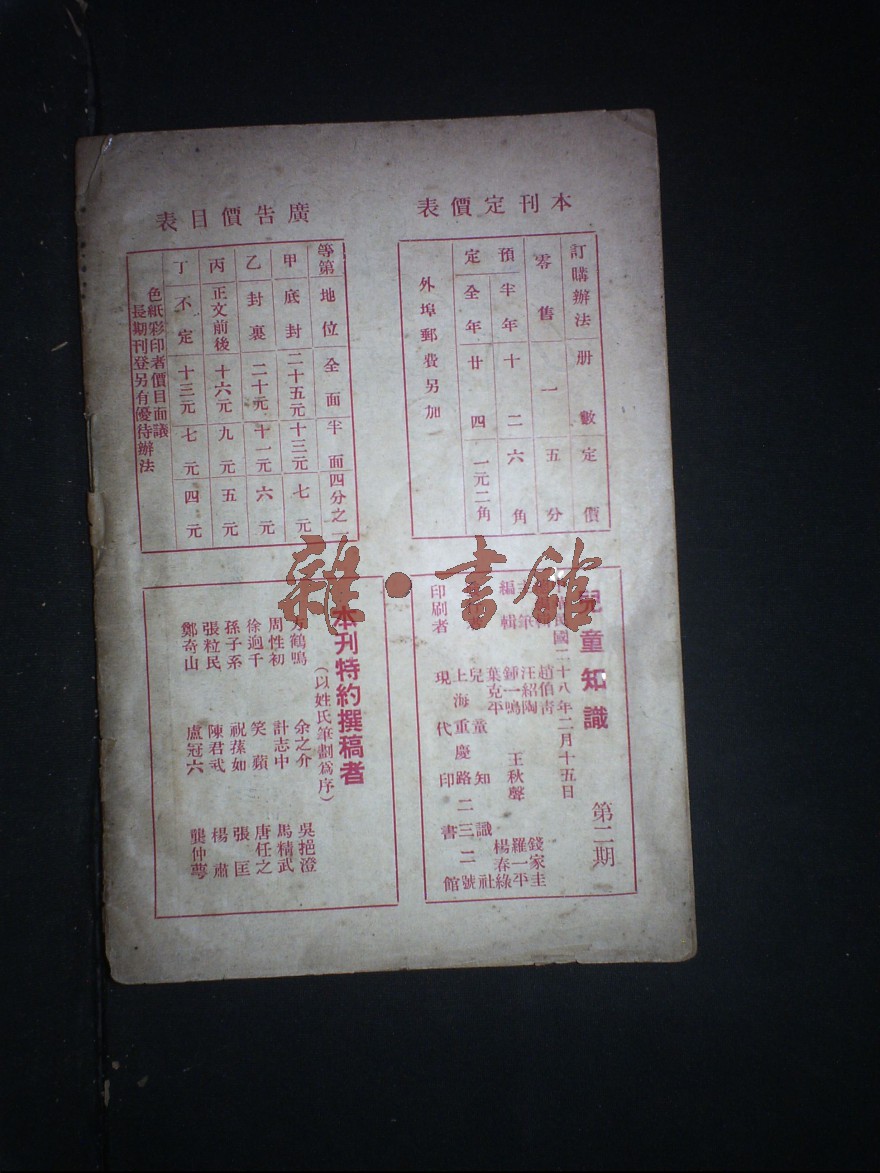 本刊定價表
訂購辦法 册數 定價
零售 一 五分
預 半年 十二 六角
定 全年 廿四 一元二角
外埠郵費另加
廣告價目表
等第 地位 全面 半面 四分之一
甲 底封 二十五元 十三元 七元
乙 封裏 二十元 十一元 六元
丙 正文前後 十六元 九元 五元
丁 不定 十三元 七元 四元
色紙彩印者價目面議
長期刊登另有優待辦法
兒童知識 第二期
國二十八年二月十五日
趙伯青 錢家圭
汪紹陶 王秋聲 羅一平
編輯 鍾一鳴 楊春綠
葉克平
兒童知識社
上海重慶路二三二號
印刷者 現代印書館
本刊特約撰稿者
(以姓氏筆劃爲序)
鶴鳴 余之介 吳挹澄
周性初 計志中 馬精武
徐迥千 笑蘋 唐任之
孫子系 祝葇如 張匡
張粒民 陳君 楊肅
鄭奇山 盧冠六 龔仲
雜·書館